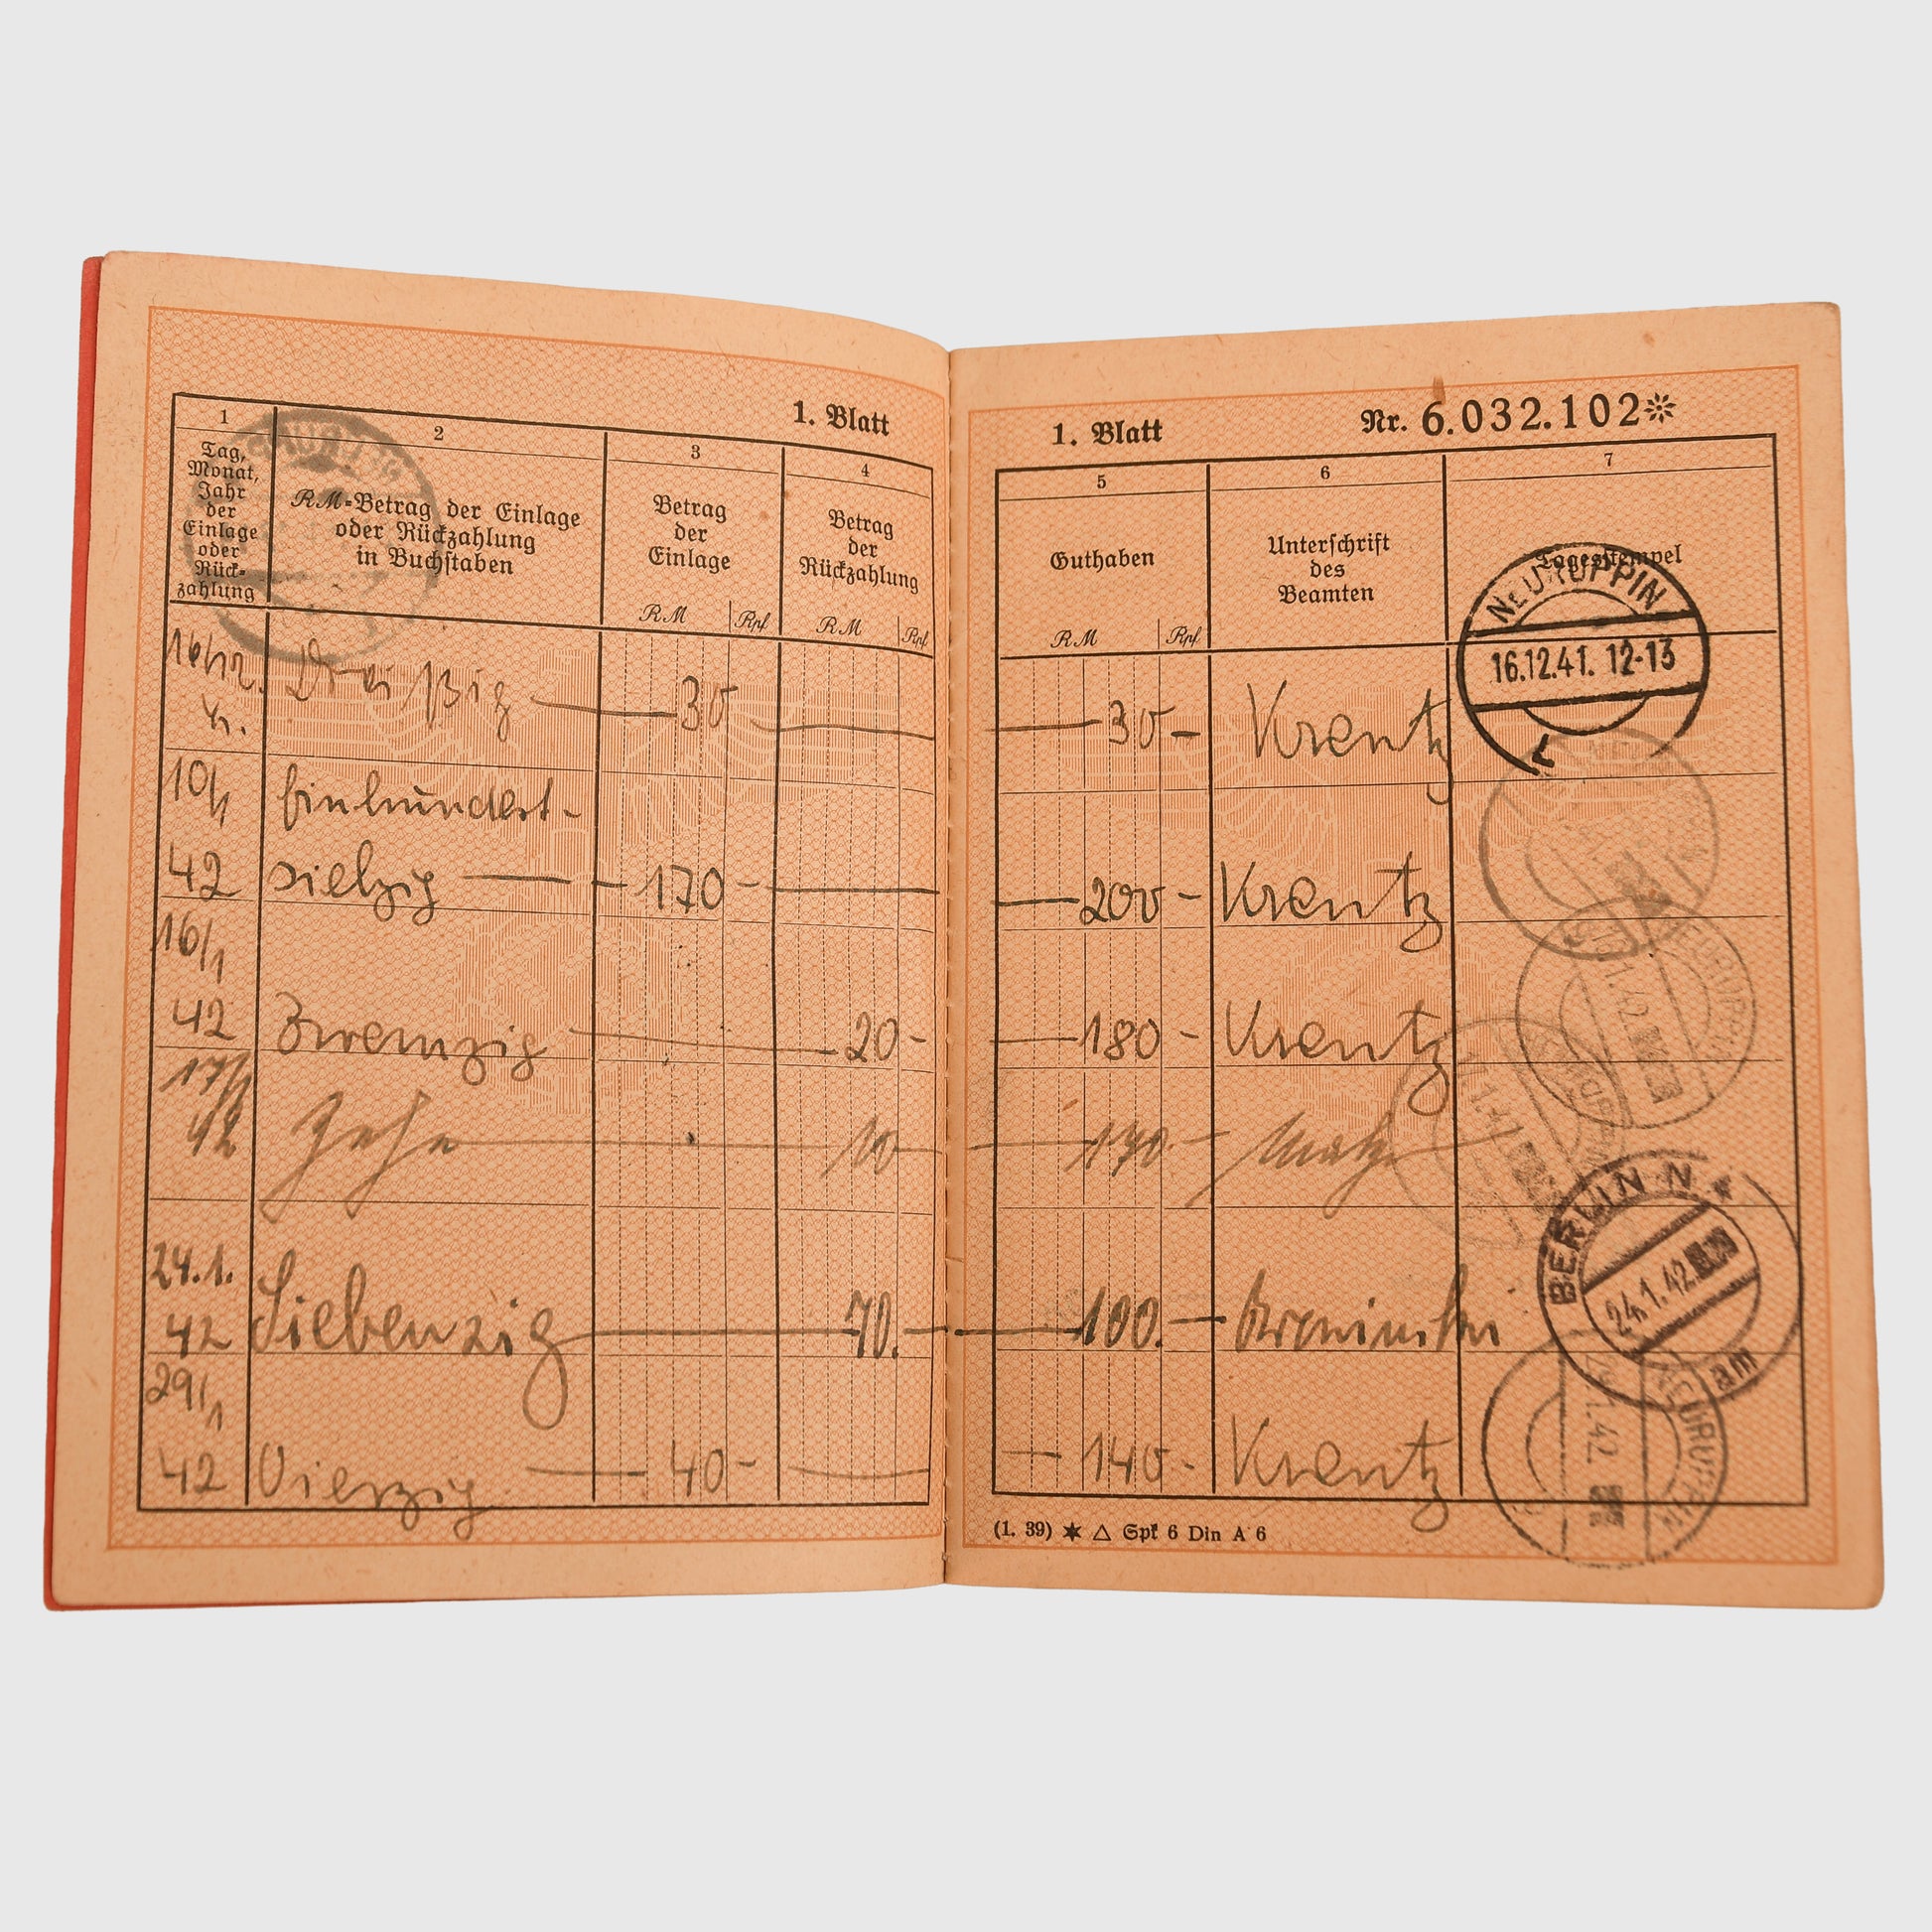 1. Blatt
1
2
3
4
Tag,
Monat,
Jahr
der
Einlage
oder
Rück-
zahlung
RM-Betrag der Einlage
oder Rückzahlung
in Buchstaben
Betrag
der
Einlage
Betrag
der
Rückzahlung
RM Rpf
RM Rpf
16/12. Dreißig 30
41.
10/1 Einhundert-
42 siebzig 170-
16/1
42 Zwanzig 20-
17/1
42 Zehn 10
24.1.
42 Siebenzig 70.
29/1
42 Vierzig 40-
1. Blatt
Nr. 6.032.102
5
6
7
Guthaben
Unterschrift
des
Beamten
Tagesstempel
RM Rpf
30- Krentz
200- Krentz
180- Krentz
170-
100.
140- Krentz
NEURUPPIN
16.12.41. 12-13
BERLIN N
24.1.42
am
NEURUPPIN
(1. 39) Spk 6 Din A 6